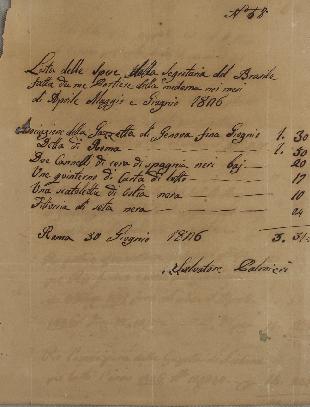 N° 68
Lista delle Spese della Segretaria del Brasile
fatta da me Portiere della medema nei mesi
di Aprile Maggio e Giugno 1876
Associazione della Gazzetta di Genova fino Giugno 1. 30
Detta di Roma 1. 50
Due Cannelli di cera di spagnia neri baj. 20
Uno quinterno di Carta di lutto 17
Una scatoletta di ostia nera 10
Fittuccia di seta nera 04
Roma 30 Giugnio 1876 3.
Salvatore Palmieri